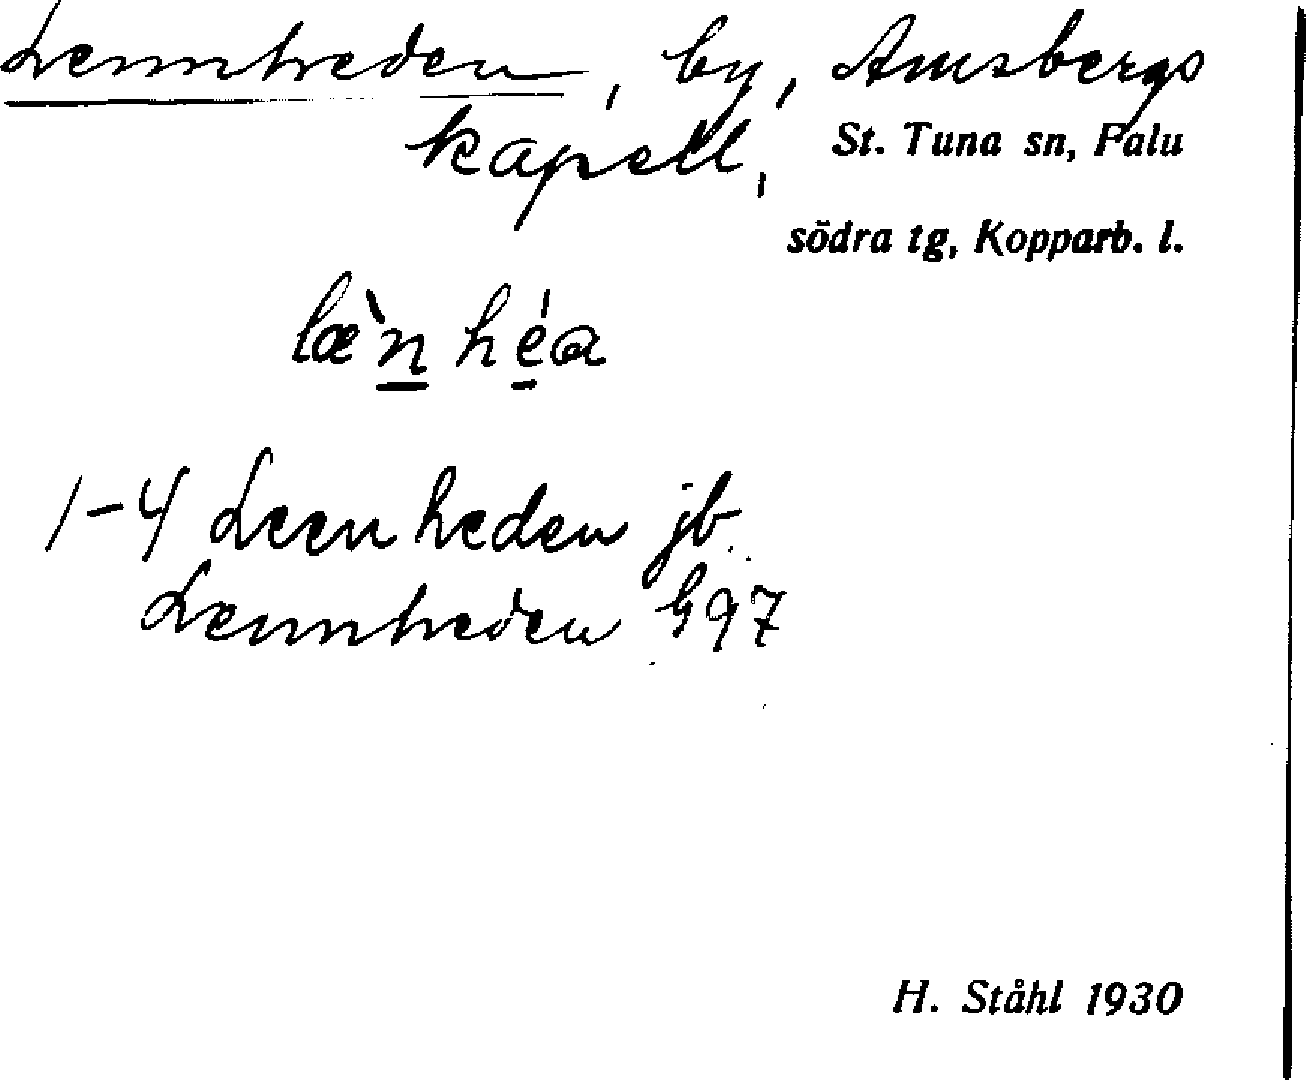 Lennheden, by, Amsbergs
kapell, St. Tuna sn, Falu
södra tg, Kopparb. l.
læ̀n héa
1-4 Leenheden jb.
Lennheden G97
H. Ståhl 1930